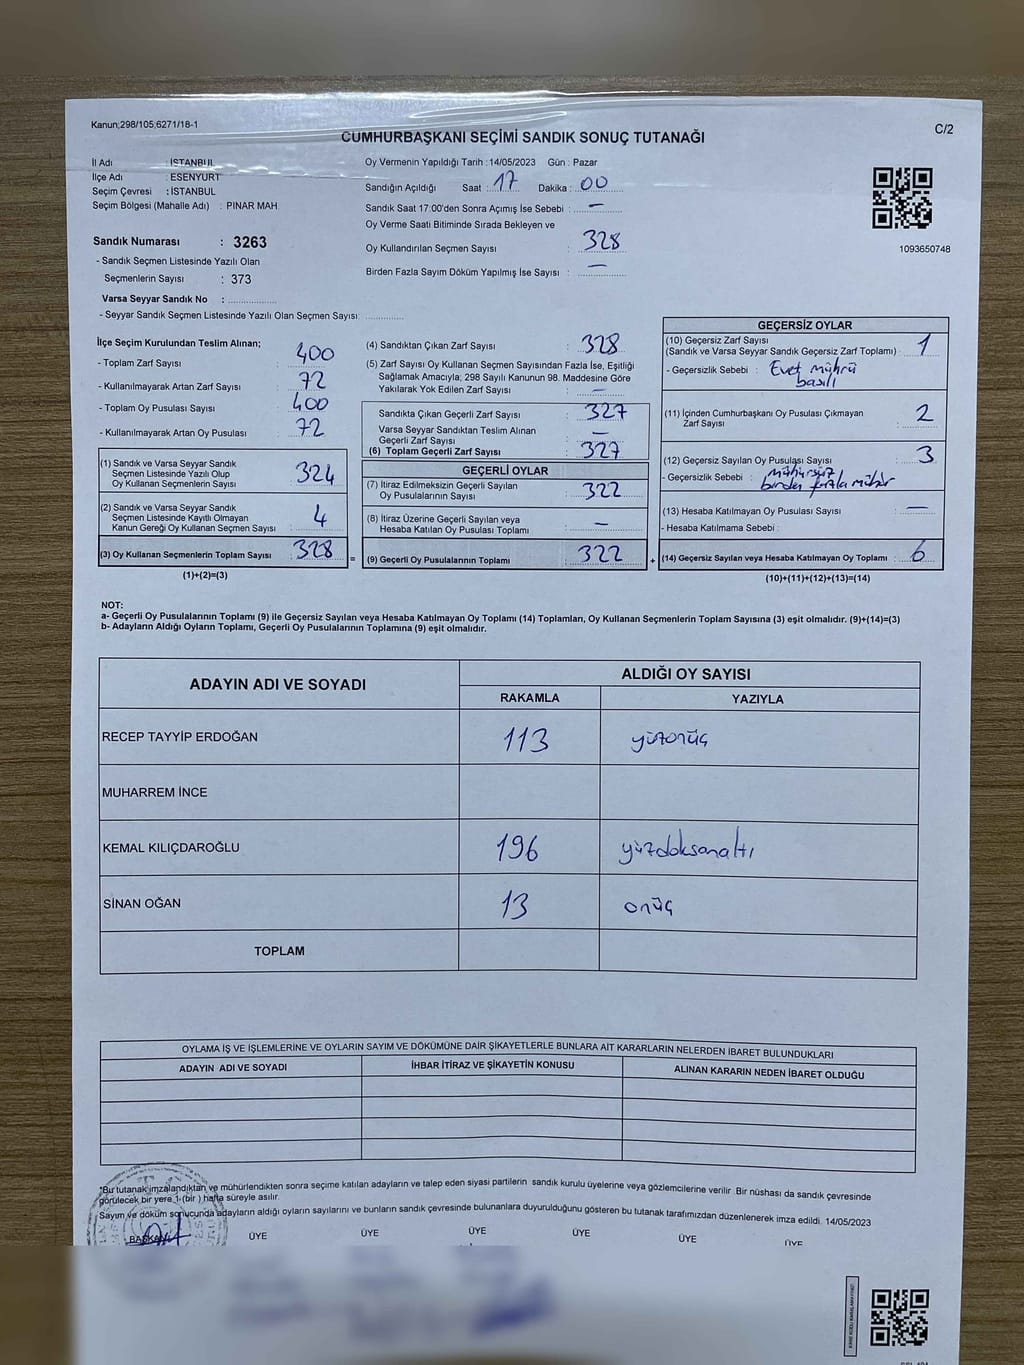 Kanun;298/105;6271/18-1
C/2
CUMHURBAŞKANI SEÇİMİ SANDIK SONUÇ TUTANAĞI
İl Adı : İSTANBUL
İlçe Adı : ESENYURT
Seçim Çevresi : İSTANBUL
Seçim Bölgesi (Mahalle Adı) : PINAR MAH.
Sandık Numarası : 3263
- Sandık Seçmen Listesinde Yazılı Olan
Seçmenlerin Sayısı : 373
Varsa Seyyar Sandık No :
- Seyyar Sandık Seçmen Listesinde Yazılı Olan Seçmen Sayısı:
Oy Vermenin Yapıldığı Tarih :14/05/2023 Gün : Pazar
Sandığın Açıldığı Saat : 17 Dakika : 00
Sandık Saat 17:00'den Sonra Açımış İse Sebebi : —
Oy Verme Saati Bitiminde Sırada Bekleyen ve
Oy Kullandırılan Seçmen Sayısı : 328
Birden Fazla Sayım Döküm Yapılmış İse Sayısı : —
1093650748
İlçe Seçim Kurulundan Teslim Alınan;
- Toplam Zarf Sayısı : 400
- Kullanılmayarak Artan Zarf Sayısı : 72
- Toplam Oy Pusulası Sayısı : 400
- Kullanılmayarak Artan Oy Pusulası : 72
(1) Sandık ve Varsa Seyyar Sandık
Seçmen Listesinde Yazılı Olup
Oy Kullanan Seçmenlerin Sayısı : 324
(2) Sandık ve Varsa Seyyar Sandık
Seçmen Listesinde Kayıtlı Olmayan
Kanun Gereği Oy Kullanan Seçmen Sayısı : 4
(3) Oy Kullanan Seçmenlerin Toplam Sayısı : 328
(1)+(2)=(3)
=
(4) Sandıktan Çıkan Zarf Sayısı : 328
(5) Zarf Sayısı Oy Kullanan Seçmen Sayısından Fazla İse, Eşitliği
Sağlamak Amacıyla; 298 Sayılı Kanunun 98. Maddesine Göre
Yakılarak Yok Edilen Zarf Sayısı : —
Sandıkta Çıkan Geçerli Zarf Sayısı : 327
Varsa Seyyar Sandıktan Teslim Alınan
Geçerli Zarf Sayısı : —
(6) Toplam Geçerli Zarf Sayısı : 327
GEÇERLİ OYLAR
(7) İtiraz Edilmeksizin Geçerli Sayılan
Oy Pusulalarının Sayısı : 322
(8) İtiraz Üzerine Geçerli Sayılan veya
Hesaba Katılan Oy Pusulası Toplamı : —
(9) Geçerli Oy Pusulalarının Toplamı : 322
+
GEÇERSİZ OYLAR
(10) Geçersiz Zarf Sayısı
(Sandık ve Varsa Seyyar Sandık Geçersiz Zarf Toplamı) : 1
- Geçersizlik Sebebi : Evet mührü
basılı
(11) İçinden Cumhurbaşkanı Oy Pusulası Çıkmayan
Zarf Sayısı : 2
(12) Geçersiz Sayılan Oy Pusulası Sayısı : 3
- Geçersizlik Sebebi : mühürsüz
birden fazla mühür
(13) Hesaba Katılmayan Oy Pusulası Sayısı : —
- Hesaba Katılmama Sebebi :
(14) Geçersiz Sayılan veya Hesaba Katılmayan Oy Toplamı : 6
(10)+(11)+(12)+(13)=(14)
NOT:
a- Geçerli Oy Pusulalarının Toplamı (9) ile Geçersiz Sayılan veya Hesaba Katılmayan Oy Toplamı (14) Toplamları, Oy Kullanan Seçmenlerin Toplam Sayısına (3) eşit olmalıdır. (9)+(14)=(3)
b- Adayların Aldığı Oyların Toplamı, Geçerli Oy Pusulalarının Toplamına (9) eşit olmalıdır.
ADAYIN ADI VE SOYADI
ALDIĞI OY SAYISI
RAKAMLA YAZIYLA
RECEP TAYYİP ERDOĞAN 113 yüzonüç
MUHARREM İNCE
KEMAL KILIÇDAROĞLU 196 yüzdoksanaltı
SİNAN OĞAN 13 onüç
TOPLAM
OYLAMA İŞ VE İŞLEMLERİNE VE OYLARIN SAYIM VE DÖKÜMÜNE DAİR ŞİKAYETLERLE BUNLARA AİT KARARLARIN NELERDEN İBARET BULUNDUKLARI
ADAYIN ADI VE SOYADI İHBAR İTİRAZ VE ŞİKAYETİN KONUSU ALINAN KARARIN NEDEN İBARET OLDUĞU
*Bu tutanak imzalandıktan ve mühürlendikten sonra seçime katılan adayların ve talep eden siyasi partilerin sandık kurulu üyelerine veya gözlemcilerine verilir .Bir nüshası da sandık çevresinde
görülecek bir yere 1 (bir ) hafta süreyle asılır.
Sayım ve döküm sonucunda adayların aldığı oyların sayılarını ve bunların sandık çevresinde bulunanlara duyurulduğunu gösteren bu tutanak tarafımızdan düzenlenerek imza edildi. 14/05/2023
BAŞKAN ÜYE ÜYE ÜYE ÜYE ÜYE ÜYE